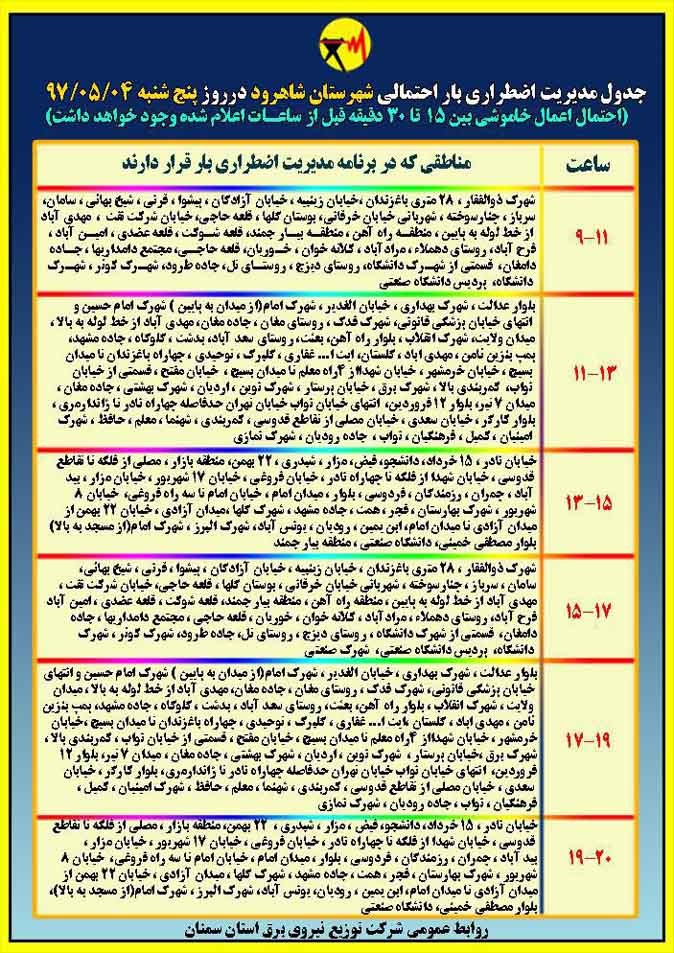 جدول مدیریت اضطراری بار احتمالی شهرستان شاهرود درروز پنج شنبه ۹۷/۰۵/۰۴
(احتمال اعمال خاموشی بین ۱۵ تا ۳۰ دقیقه قبل از ساعات اعلام شده وجود خواهد داشت)
ساعت
مناطقی که در برنامه مدیریت اضطراری بار قرار دارند
۹-۱۱
شهرک ذوالفقار ، ۲۸ متری باغزندان ،خیابان زینبیه ، خیابان آزادگان ، پیشوا ، قرنی ، شیخ بهائی ، سامان،
سرباز ، چنارسوخته ، شهربانی خیابان خرقانی، بوستان گلها ، قلعه حاجی،خیابان شرکت نفت ، مهدی آباد
از خط لوله به پایین ، منطقه راه آهن ، منطقه بیار جمند، قلعه شوکت ، قلعه عضدی ، امین آباد ،
فرح آباد، روستای دهملاء ، مرادآباد ، کلاته خوان ، خوریان، قلعه حاجی، مجتمع دامداریها ، جاده
دامغان، قسمتی از شهرک دانشگاه، روستای دیزج ، روستای تل، جاده طرود، شهرک کوثر ، شهرک
دانشگاه، پردیس دانشگاه صنعتی
۱۱-۱۳
بلوار عدالت ، شهرک بهداری ، خیابان الغدیر ، شهرک امام(از میدان به پایین ) شهرک امام حسین و
انتهای خیابان پزشکی قانونی، شهرک فدک ، روستای مغان ، جاده مغان، مهدی آباد از خط لوله به بالا،
میدان ولایت، شهرک انقلاب ، بلوار راه آهن، بعثت، روستای سعد آباد، بدشت ، گلوگاه ، جاده مشهد،
پمپ بنزین ثامن ، مهدی اباد ، گلستان، ایت ا... غفاری ، گلبرگ ، توحیدی ، چهاراه باغزندان تا میدان
بسیج ، خیابان خرمشهر ، خیابان شهدااز ۴راه معلم تا میدان بسیج ، خیابان مفتح ، قسمتی از خیابان
نواب، کمربندی بالا ، شهرک برق ، خیابان پرستار ، شهرک نوین ، اردیان ، شهرک بهشتی ، جاده مغان ،
میدان ۷ تیر، بلوار ۱۲ فروردین، انتهای خیابان نواب خیابان تهران حدفاصله چهاراه نادر تا ژاندارمری ،
بلوار کارگر ، خیابان سعدی ، خیابان مصلی از تقاطع قدوسی ، کمربندی ، شهنما ، معلم ، حافظ ، شهرک
امینیان ، کمیل ، فرهنگیان ، نواب ، جاده رودیان ، شهرک نمازی
۱۳-۱۵
خیابان نادر ، ۱۵ خرداد، دانشجو، فیض ، مزار ، شیدری ، ۲۲ بهمن، منطقه بازار، مصلی از فلکه تا تقاطع
قدوسی ، خیابان شهدا از فلکه تا چهاراه نادر ، خیابان فروغی ، خیابان ۱۷ شهریور ، خیابان مزار ، بید
آباد، چمران ، رزمندگان ، فردوسی ، بلوار ، میدان امام ، خیابان امام تا سه راه فروغی ، خیابان ۸
شهریور ، شهرک بهارستان ، فجر، همت ، جاده مشهد ، شهرک گلها ،میدان آزادی ، خیابان ۲۲ بهمن از
میدان آزادی تا میدان امام، ابن یمین ، رودیان ، یونس آباد، شهرک البرز ، شهرک امام(از مسجد به بالا)
بلوار مصطفی خمینی، دانشگاه صنعتی ، منطقه بیار جمند
۱۵-۱۷
شهرک ذوالفقار ، ۲۸ متری باغزندان ، خیابان زینبیه ، خیابان آزادگان ، پیشوا ، قرنی ، شیخ بهائی،
سامان ، سرباز ، چنارسوخته ، شهربانی خیابان خرقانی ، بوستان گلها ، قلعه حاجی، خیابان شرکت نفت ،
مهدی آباد از خط لوله به پایین ، منطقه راه آهن ، منطقه بیار جمند، قلعه شوکت ، قلعه عضدی ، امین آباد
فرح آباد، روستای دهملاء ، مرادآباد ، کلاته خوان ، خوریان ، قلعه حاجی ، مجتمع دامداریها ، جاده
دامغان، قسمتی از شهرک دانشگاه ، روستای دیزج ، روستای تل، جاده طرود، شهرک کوثر ، شهرک
دانشگاه، پردیس دانشگاه صنعتی ، شهرک صنعتی
۱۷-۱۹
بلوار عدالت ، شهرک بهداری ، خیابان الغدیر، شهرک امام(از میدان به پایین ) شهرک امام حسین و انتهای
خیابان پزشکی قانونی، شهرک فدک ، روستای مغان ، جاده مغان، مهدی آباد از خط لوله به بالا ، میدان
ولایت ، شهرک انقلاب ، بلوار راه آهن، بعثت، روستای سعد آباد ، بدشت ، گلوگاه ، جاده مشهد، پمپ بنزین
ثامن ، مهدی اباد ، گلستان ،ایت ا... غفاری ، گلبرگ ، توحیدی ، چهاراه باغزندان تا میدان بسیج ،خیابان
خرمشهر ، خیابان شهدااز ۴راه معلم تا میدان بسیج ، خیابان مفتح ، قسمتی از خیابان نواب، کمربندی بالا ،
شهرک برق ،خیابان پرستار ، شهرک نوین ، اردیان ، شهرک بهشتی ، جاده مغان ، میدان ۷ تیر، بلوار ۱۲
فروردین، انتهای خیابان نواب خیابان تهران حدفاصله چهاراه نادر تا ژاندارمری، بلوار کارگر ، خیابان
سعدی ، خیابان مصلی از تقاطع قدوسی ، کمربندی ، شهنما ، معلم ، حافظ ، شهرک امینیان ، کمیل ،
فرهنگیان ، نواب ، جاده رودیان ، شهرک نمازی
۱۹-۲۰
خیابان نادر ، ۱۵ خرداد، دانشجو، فیض ، مزار ، شیدری ، ۲۲ بهمن، منطقه بازار ، مصلی از فلکه تا تقاطع
قدوسی ، خیابان شهدا از فلکه تا چهاراه نادر ، خیابان فروغی ، خیابان ۱۷ شهریور ، خیابان مزار ،
بید آباد، چمران ، رزمندگان ، فردوسی ، بلوار ، میدان امام ، خیابان امام تا سه راه فروغی، خیابان ۸
شهریور ، شهرک بهارستان ، فجر ، همت ، جاده مشهد ، شهرک گلها ، میدان آزادی ، خیابان ۲۲ بهمن از
میدان آزادی تا میدان امام، ابن یمین ، رودیان، یونس آباد، شهرک البرز ، شهرک امام(از مسجد به بالا)،
بلوار مصطفی خمینی، دانشگاه صنعتی
روابط عمومی شرکت توزیع نیروی برق استان سمنان